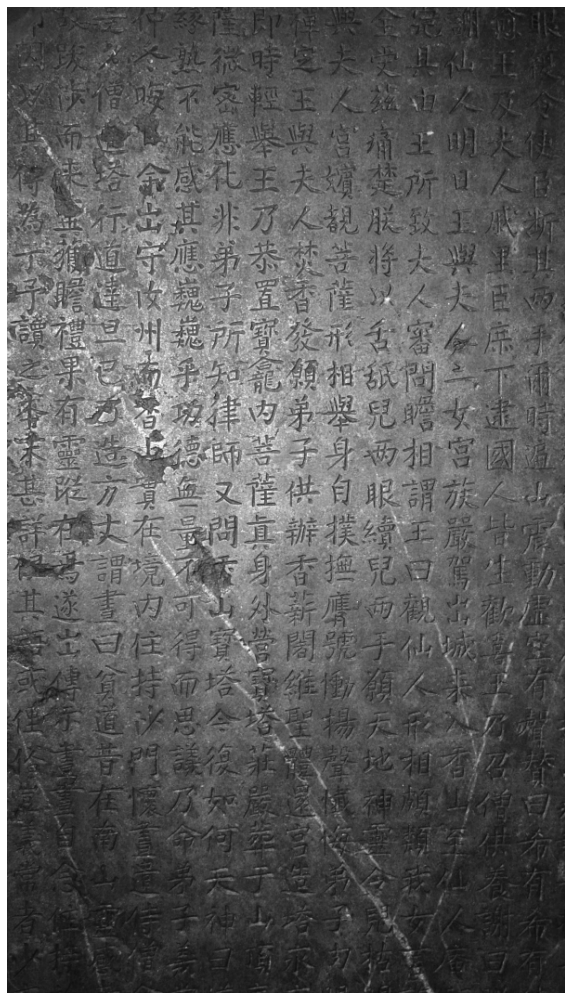 眼復令使臣斷其兩手爾時遍山震動虛空有聲贊曰希有希有
愈王及夫人戚里臣庶下逮國人皆生歡喜王乃召僧供養謝曰
謝仙人明日王與夫人二女宮族嚴駕出城來入香山至仙人庵
其由王所致夫人審問瞻相謂王曰觀仙人形相頗類我女
全受茲痛楚朕將以舌舐兒兩眼續兒兩手願天地神靈令兒枯
與夫人宮嬪覩菩薩形相舉身自撲撫膺號慟揚聲懺悔弟子力
禪定王與夫人焚香發願弟子供辦香薪闍維聖體還宮造塔永
即時輕舉王乃恭置寶龕內菩薩真身外營寶塔莊嚴葬于山頂
薩微密應化非弟子所知律師又問香山寶塔今復如何天神曰
緣熟不能感其應巍巍乎功德無量不可得而思議乃命弟子義
仲冬晦日余出守汝州而香山實在境內住持沙門懷晝遣侍僧命
是僧遶塔行道達旦已乃造方丈謂晝曰貧道昔在南山靈
跋涉而來獲瞻禮果有靈蹤在焉遂出傳示晝晝自念住持
因以其傳為丁予讀之本末甚詳但其語或俚俗豈義常者少